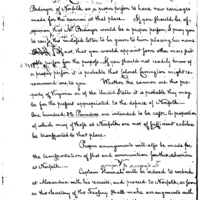 Pedinger of Norfolk as a proper person to have new carriages
made for the cannon at that place. If you should be of
opinion that Mr Pedinger would be a proper person, I pray you
to let the enclosed letter to be given to him placing his name
that you would appoint some other more suit-
able person for the purpose. If you should not readily know of
a proper person, it is probable that Colonel Carrington might re-
commend one to you. Whether the cannon are the pro-
perty of Virginia or of the United States, it is probable they may
be for the present appropriated to the defence of Norfolk.
One hundred are intended to be
of which may if those at Norfolk are not of sufficient calibre
be transported to that place.
Proper arrangements will also be made for
the transportation of shot and ammunition
at Norfolk.
Captain Hannah will be ordered to embark
at Alexandria with his recruits, and proceed to Norfolk, as soon
as the Secretary of the Treasury shall make arrangements with